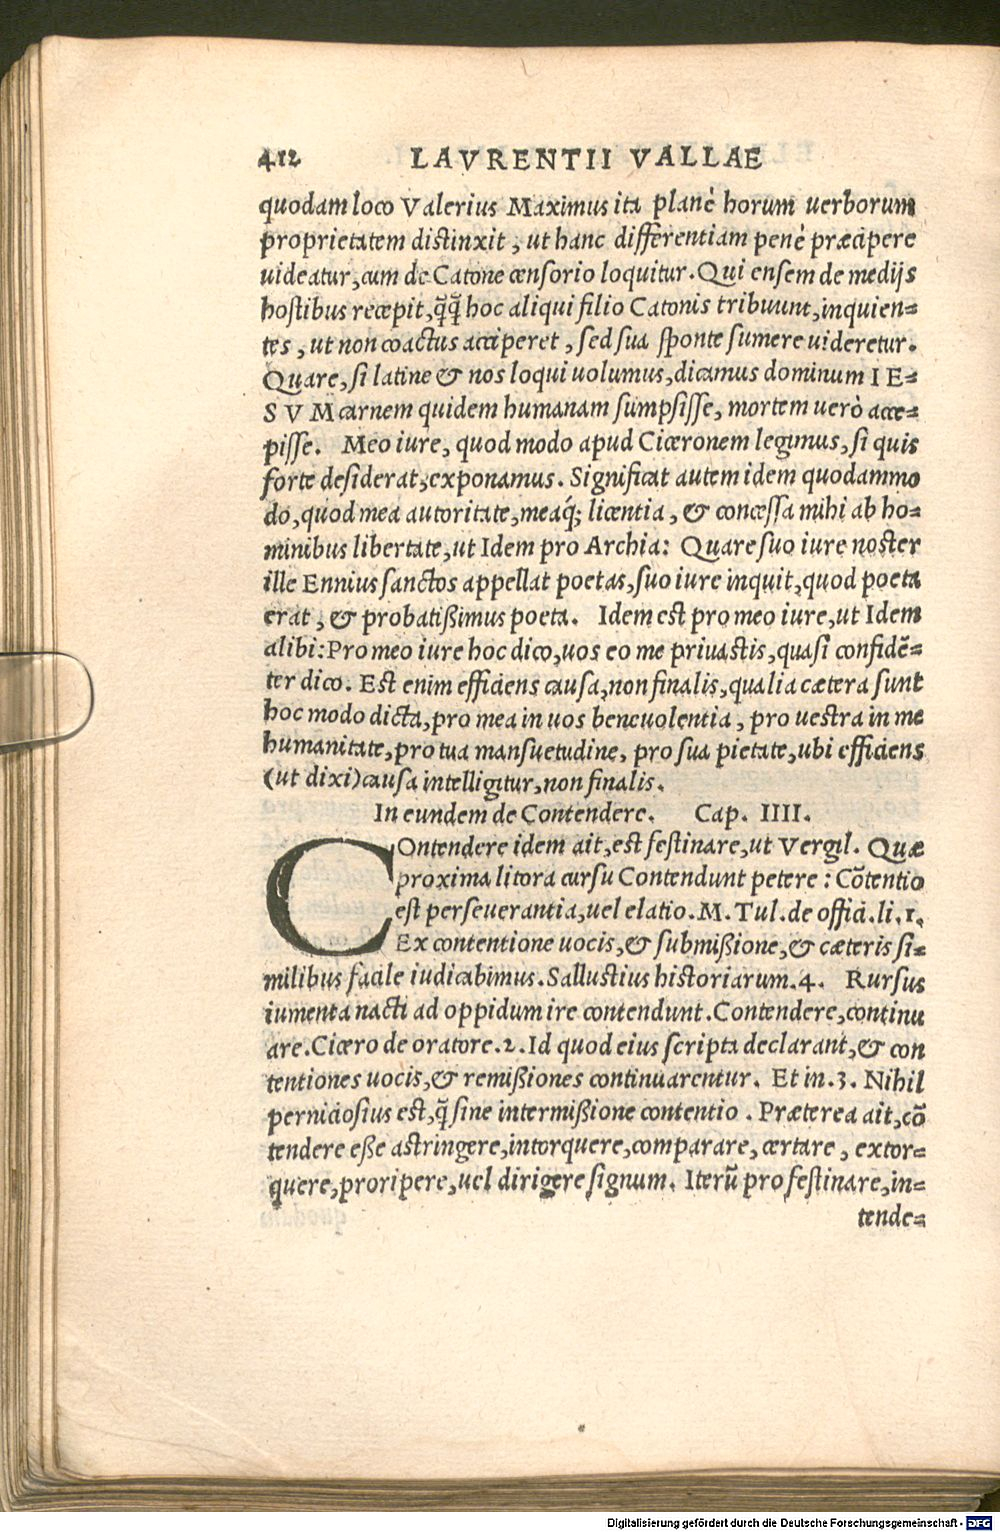 412 LAVRENTII VALLAE
quodam loco Valerius Maximus ita planè horum uerborum
proprietatem distinxit, ut hanc differentiam penè præcipere
uideatur, cum de Catone censorio loquitur. Qui ensem de medijs
hostibus recepit, q̃q̃ hoc aliqui filio Catonis tribuunt, inquien=
tes, ut non coactus acciperet, sed sua sponte sumere uideretur.
Quare, si latine & nos loqui uolumus, dicamus dominum I E=
S V M carnem quidem humanam sumpsisse, mortem uerò acce=
pisse. Meo iure, quod modo apud Ciceronem legimus, si quis
forte desiderat, exponamus. Significat autem idem quodammo
do, quod mea autoritate, meaq́; licentia, & concessa mihi ab ho=
minibus libertate, ut Idem pro Archia: Quare suo iure noster
ille Ennius sanctos appellat poetas, suo iure inquit, quod poeta
erat, & probatißimus poeta. Idem est pro meo iure, ut Idem
alibi: Pro meo iure hoc dico, uos eo me priuastis, quasi confidē=
ter dico. Est enim efficiens causa, non finalis, qualia cætera sunt
hoc modo dicta, pro mea in uos beneuolentia, pro uestra in me
humanitate, pro tua mansuetudine, pro sua pietate, ubi efficiens
(ut dixi) causa intelligitur, non finalis.
In eundem de Contendere. Cap. IIII.
COntendere idem ait, est festinare, ut Vergil. Quæ
proxima litora cursu Contendunt petere: Cōtentio
est perseuerantia, uel elatio. M. Tul. de offici. li. 1.
Ex contentione uocis, & submißione, & cæteris si=
milibus facile iudicabimus. Sallustius historiarum. 4. Rursus
iumenta nacti ad oppidum ire contendunt. Contendere, continu
are. Cicero de oratore. 2. Id quod eius scripta declarant, & con
tentiones uocis, & remißiones continuarentur. Et in. 3. Nihil
perniciosius est, q̃ sine intermißione contentio. Præterea ait, cō
tendere eße astringere, intorquere, comparare, certare, extor=
quere, proripere, uel dirigere signum. Iterū pro festinare, in=
tende=
Digitalisierung gefördert durch die Deutsche Forschungsgemeinschaft - DFG